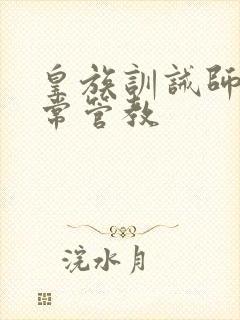 皇族訓誡師
常管教
浣水月